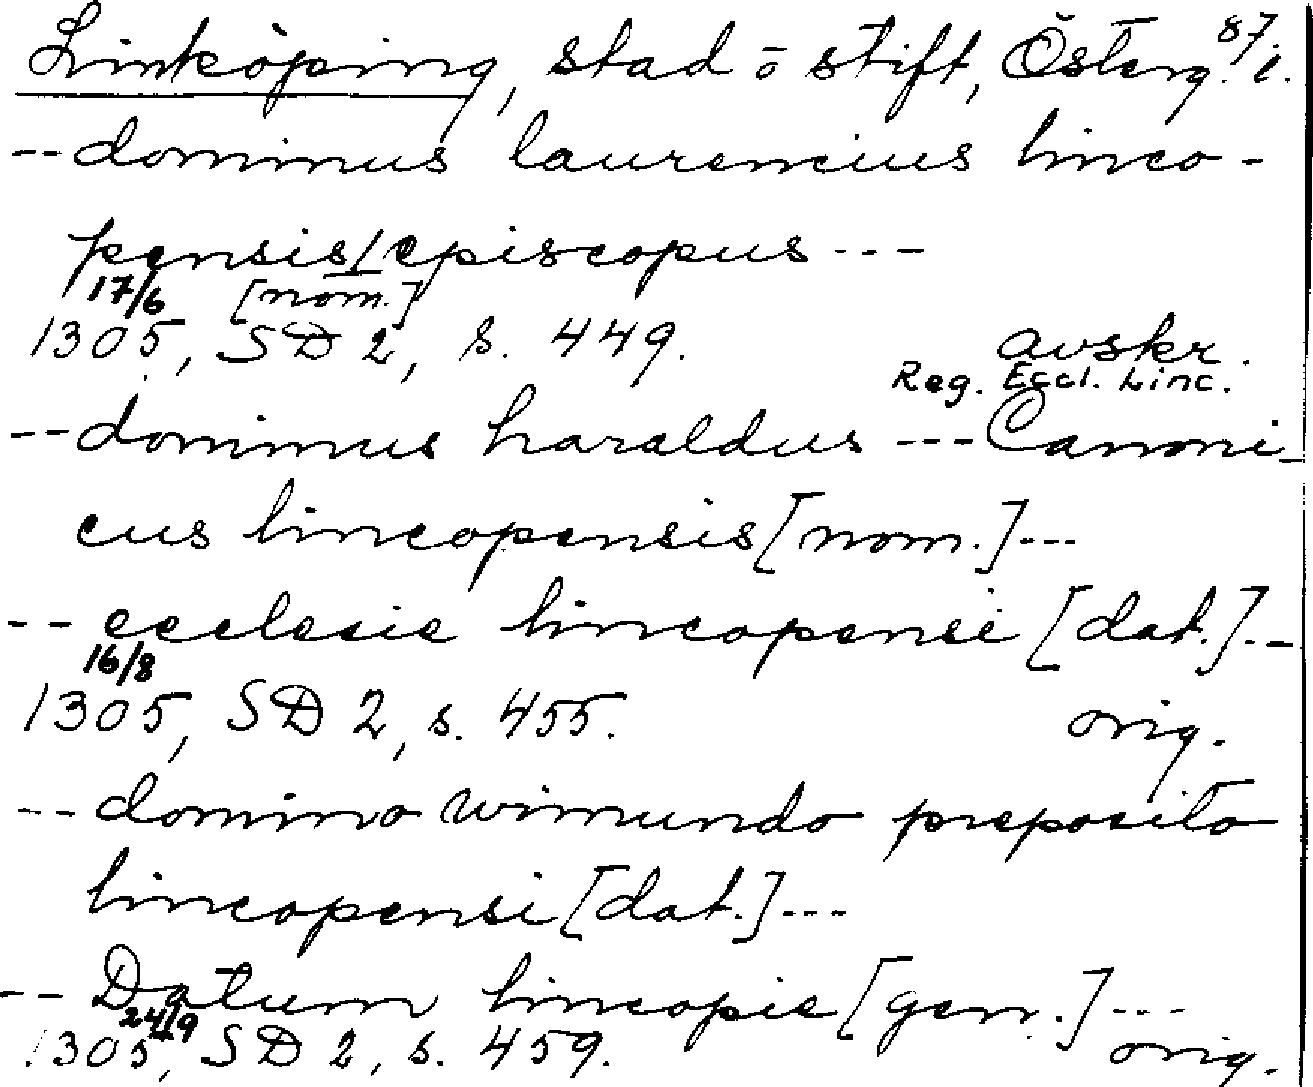 Linköping, stad ō stift, Österg. 87/i.
-- dominus laurencius linco-
pensis/episcopus ---
17/6 [nom.]
1305, SD 2, s. 449. avskr.
Reg. Eccl. Linc.
-- dominus haraldus --- Canoni-
cus lincopensis [nom.] ---
-- ecclesie lincopensi [dat.] --
16/8
1305, SD 2, s. 455. orig.
-- domino wimundo preposito
lincopensi [dat.] ---
-- Datum lincopie [gen.] ---
24/9
1305, SD 2, s. 459. orig.